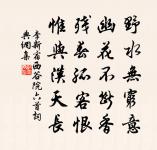 野水無窮意
幽花不斷香
殘春孤客恨
惟與漢天長
李新宿西谷院六首詞
典網集